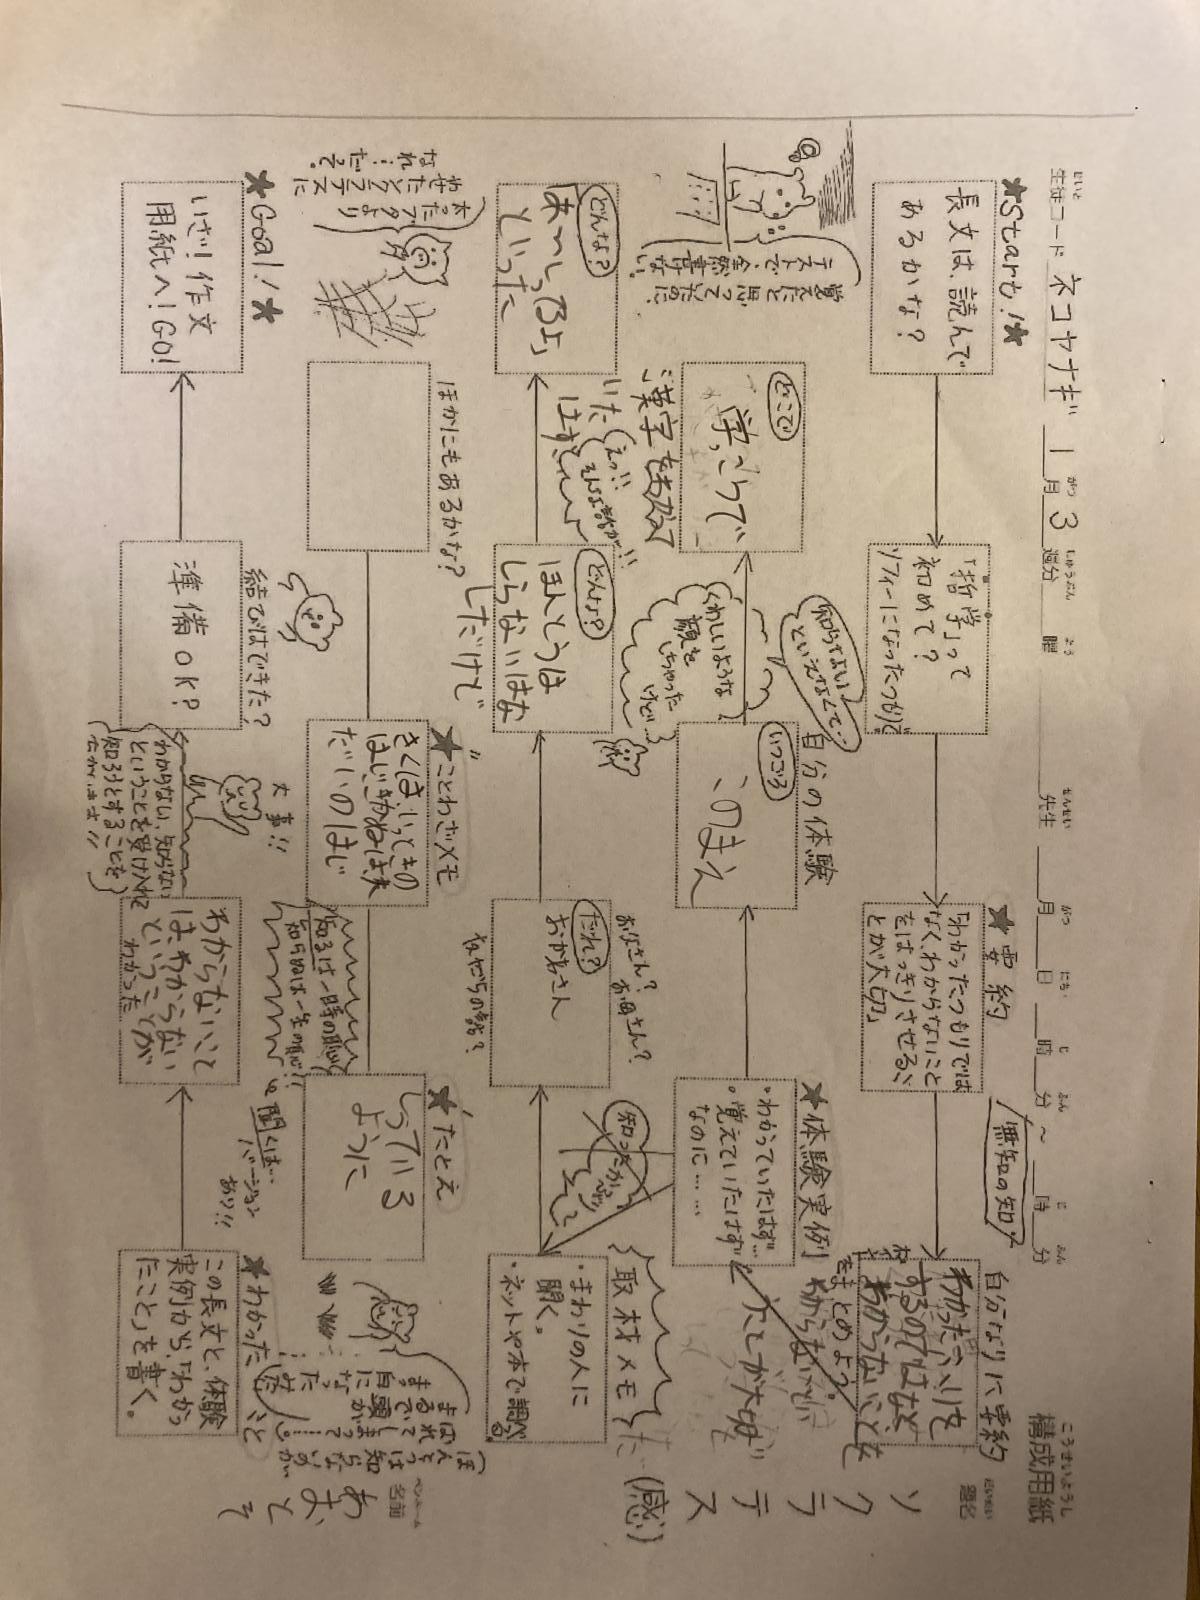 構成用紙
こうせいようし
生徒コード ネコヤナギ 1月3週分 曜 先生 月 日 時 分 〜 時 分
題名
ソクラテス
(感)
ペンネーム
名前
あおとそ
★Start!★
長文は、読んで
あるかな?
「哲学」って
初めて?
ソフィーになったつもりで
★要約
「わかったつもりでは
なく、わからないこと
をはっきりさせるこ
とが大切」
無知の知
自分なりに要約
をまとめよう
わかったふりを
するのではなく
わからないことを
わからないと
ことが大切
★体験実例
・わかっていたはず…
・覚えていたはず
なのに……
自分の体験
いつごろ
このまえ
知らなくてよい!
といえなくて…
くわしいような
顔を
しちゃった
けど…
どこで
学っこうで
漢字をおぼえて
いた
はず
(えっ!!
そんな漢字が!!
覚えたと思っていたのに、
テストで、全然書けない。
取材メモ
・まわりの人に
聞く。
・ネットや本で調べる。
知ったかぶり
お父さん?
お母さん?
だれ?
おかあさん
友だちの話?
どんな?
ほんとうは
しらないはな
しだけど
どんな?
「あ〜しってるよ」
といった
★たとえ
しっている
ように
ほんとうは知らないのが
ばれてしまって
まるで頭が
まっ白になった
★ことわざメモ
きくは、いっときの
はじ、きかぬは、ま
だいのはじ
知るは一時の恥
知らぬは一生の恥!!
聞くは…
バージョン
あり!!
ほかにもあるかな?
太ったブタより
やせたソクラテスに
なれ…だぞ。
★わかったこと
この長文と、体験
実例から、「わかっ
たこと」を書く。
わからないこと
は、わからない
ということが
わかった
大事!!
わからない、知らない
ということを受け入れて
知ろうとすることを
結びはできた?
準備OK?
★Goal!★
いざ!作文
用紙へ!GO!